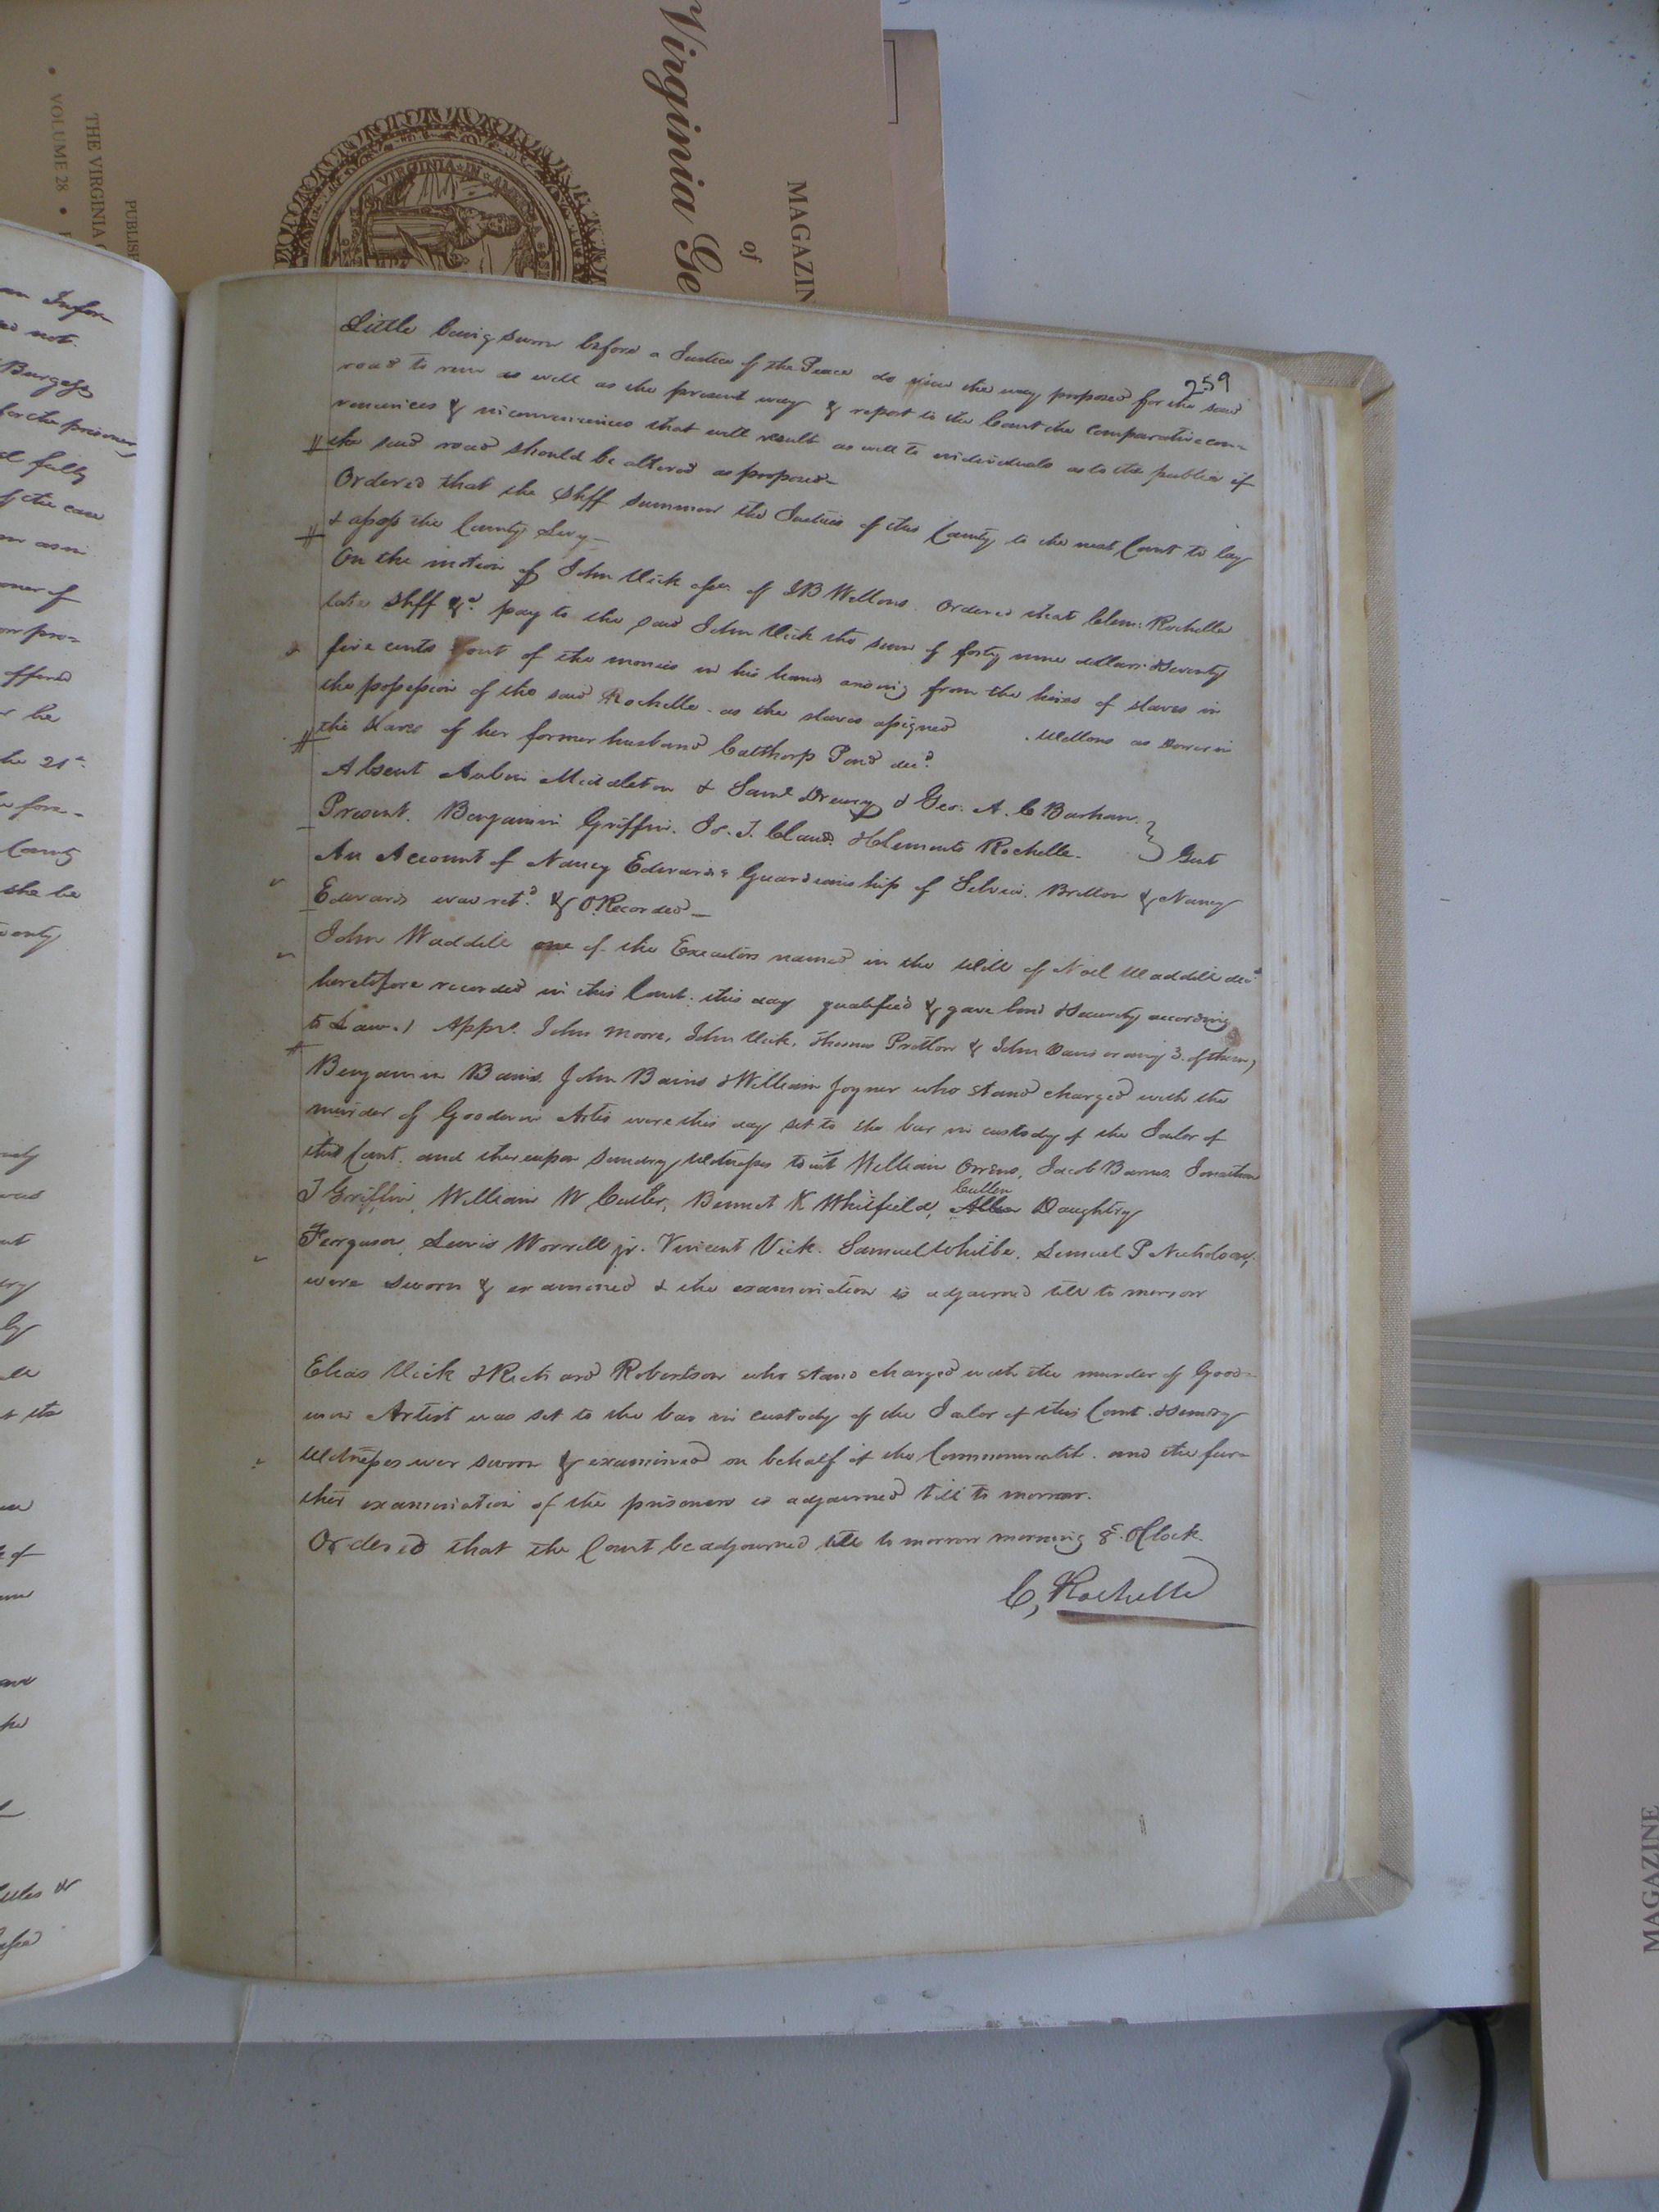 Virginia Ge
MAGAZIN
of
VIRGINIA
PUBLISH
THE VIRGINIA
• VOLUME 28 •
259
Little being sworn before a Justice of the Peace do view the way proposed for the said
road to run as well as the present way & report to the Court the comparative con-
veniences & inconveniences that will result as well to individuals as to the public if
the said road should be altered as proposed-
Ordered that the Shff summon the Justices of this County to the next Court to lay
& assess the County Levy-
On the motion of John Vick of J B Wellons. Ordered that Clem: Rochelle
late Shff &c pay to the said John Vick the sum of forty nine dollars & Seventy
five cents out of the monies in his hands arising from the hires of slaves in
the possession of the said Rochelle - as the slaves assigned Wellons as Dower in
the slaves of her former husband Calthorp Pond decd.
Absent Aubin Middleton & Saml Drewry & Geo. A. C Barham.
Present. Benjamin Griffin. Jo. T. Claud & Clements Rochelle. } Gent
An Account of Nancy Edwards's Guardianship of Selvia. Britton & Nancy
Edwards was retd. & O.Recorded-
John Waddill one of the Executors named in the Will of Noel Waddill decd
heretofore recorded in this Court. this day qualified & gave bond & Security according
to Law. Apprs. John Moore, John Vick, Thomas Pretlow & John Davis or any 3. of them,
Benjamin Bains. John Bains & William Joyner who stand charged with the
murder of Goodwin Artis were this day set to the bar in custody of the Jailor of
this Court. and thereupon sundry Witnesses to wit William Orrens, Jacob Barnes Jonathan
J Griffin, William W Cutler, Bennet K Whitfield, Cullen Daughtry
Ferguson, Lewis Worrell jr. Vincent Vick. Samuel White. Samuel P Nicholson,
were sworn & examined & the examination is adjourned till to morrow
Elias Vick & Richard Robertson who stand charged with the murder of Good-
win Artist was set to the bar in custody of the Jailor of this Court. & Sundry
Witnesses wer sworn & examined on behalf of the Commonwealth. and the fur-
ther examination of the prisoners is adjourned till to morrow.
Ordered that the Court be adjourned till to morrow morning 8. OClock.
C, Rochelle
MAGAZINE